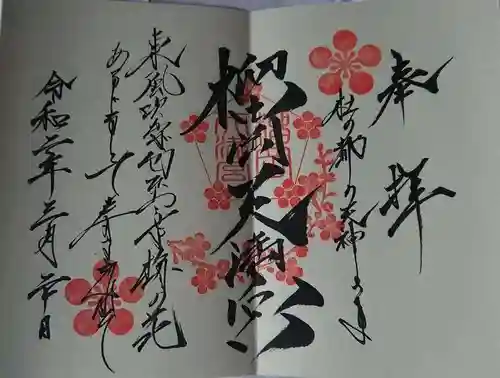 奉拝
杜の都の天神さま
榴岡天満宮
東風吹かば匂ひおこせよ梅の花
あるじなしとて春な忘れそ
令和二年三月廿日